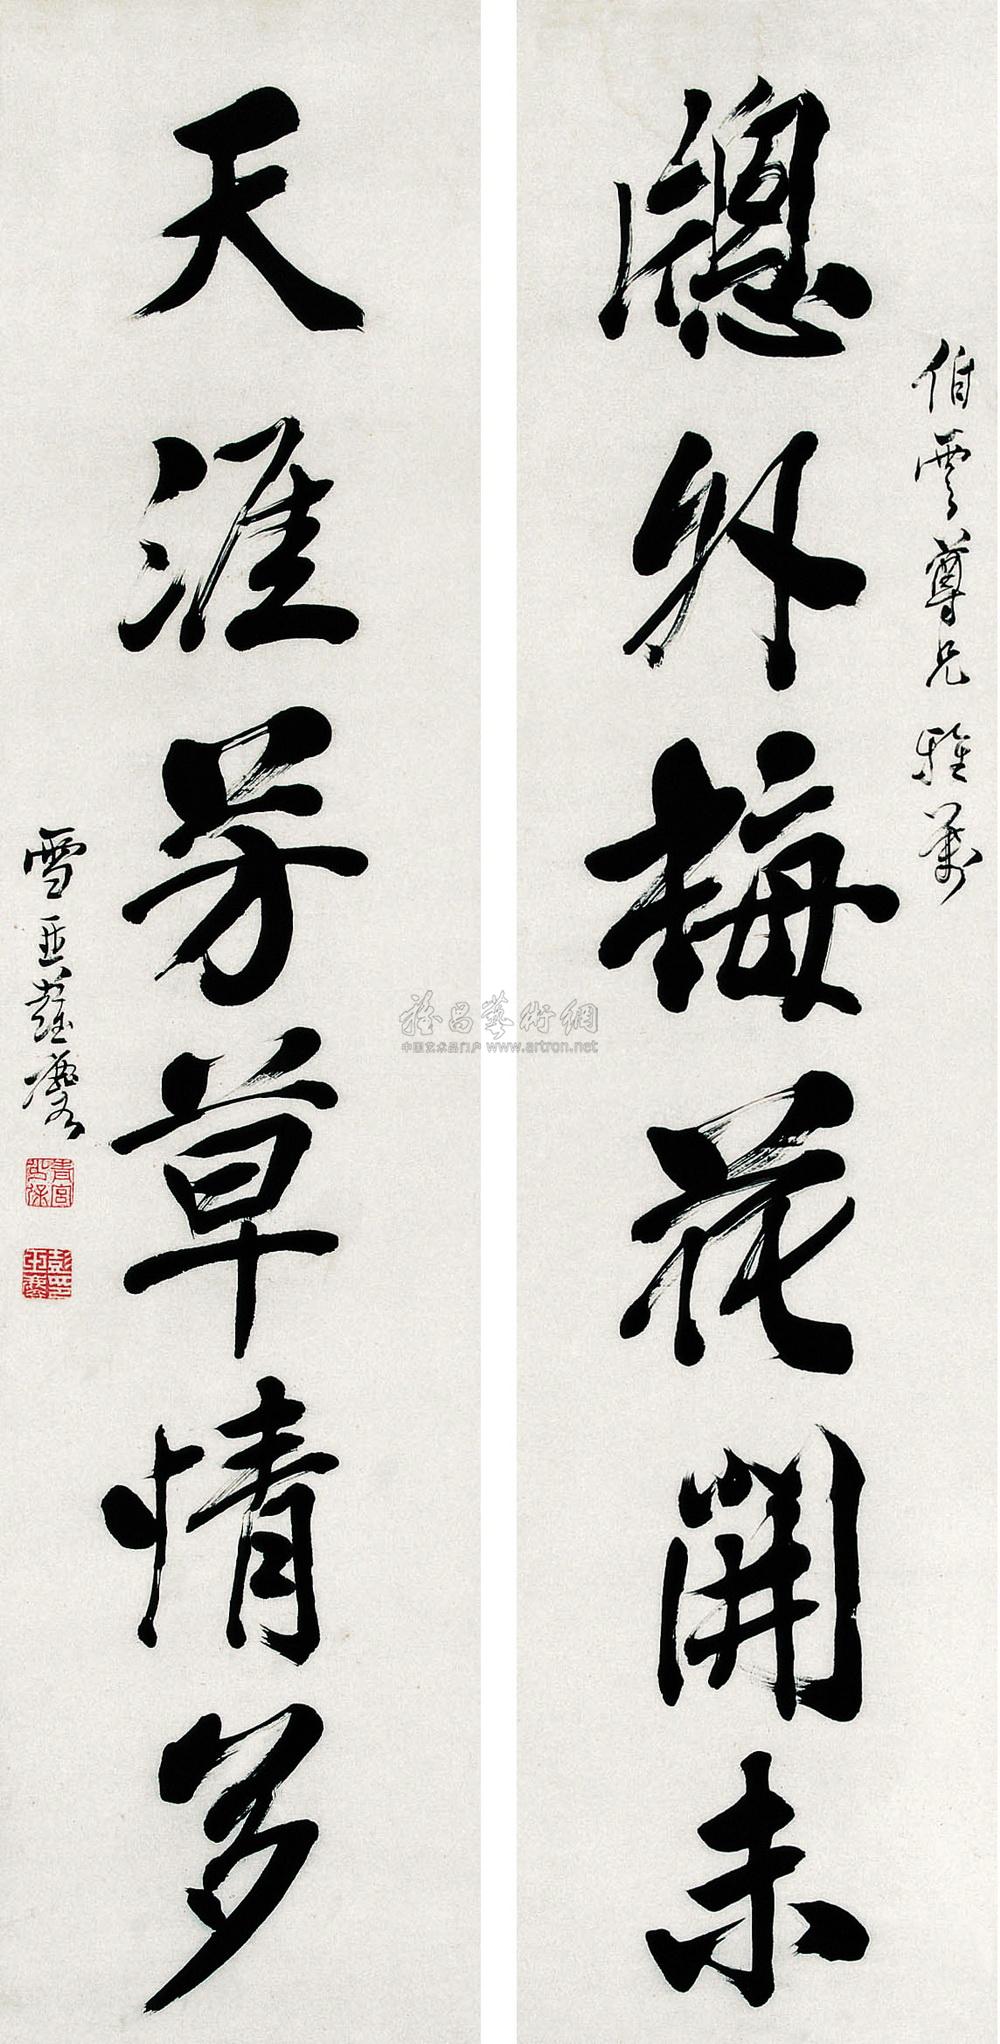 伯雲尊兄雅
牕外梅花開未
天涯芳草情多
雪
青宮少保
雅昌藝術網
中国艺术品门户 www.artron.net